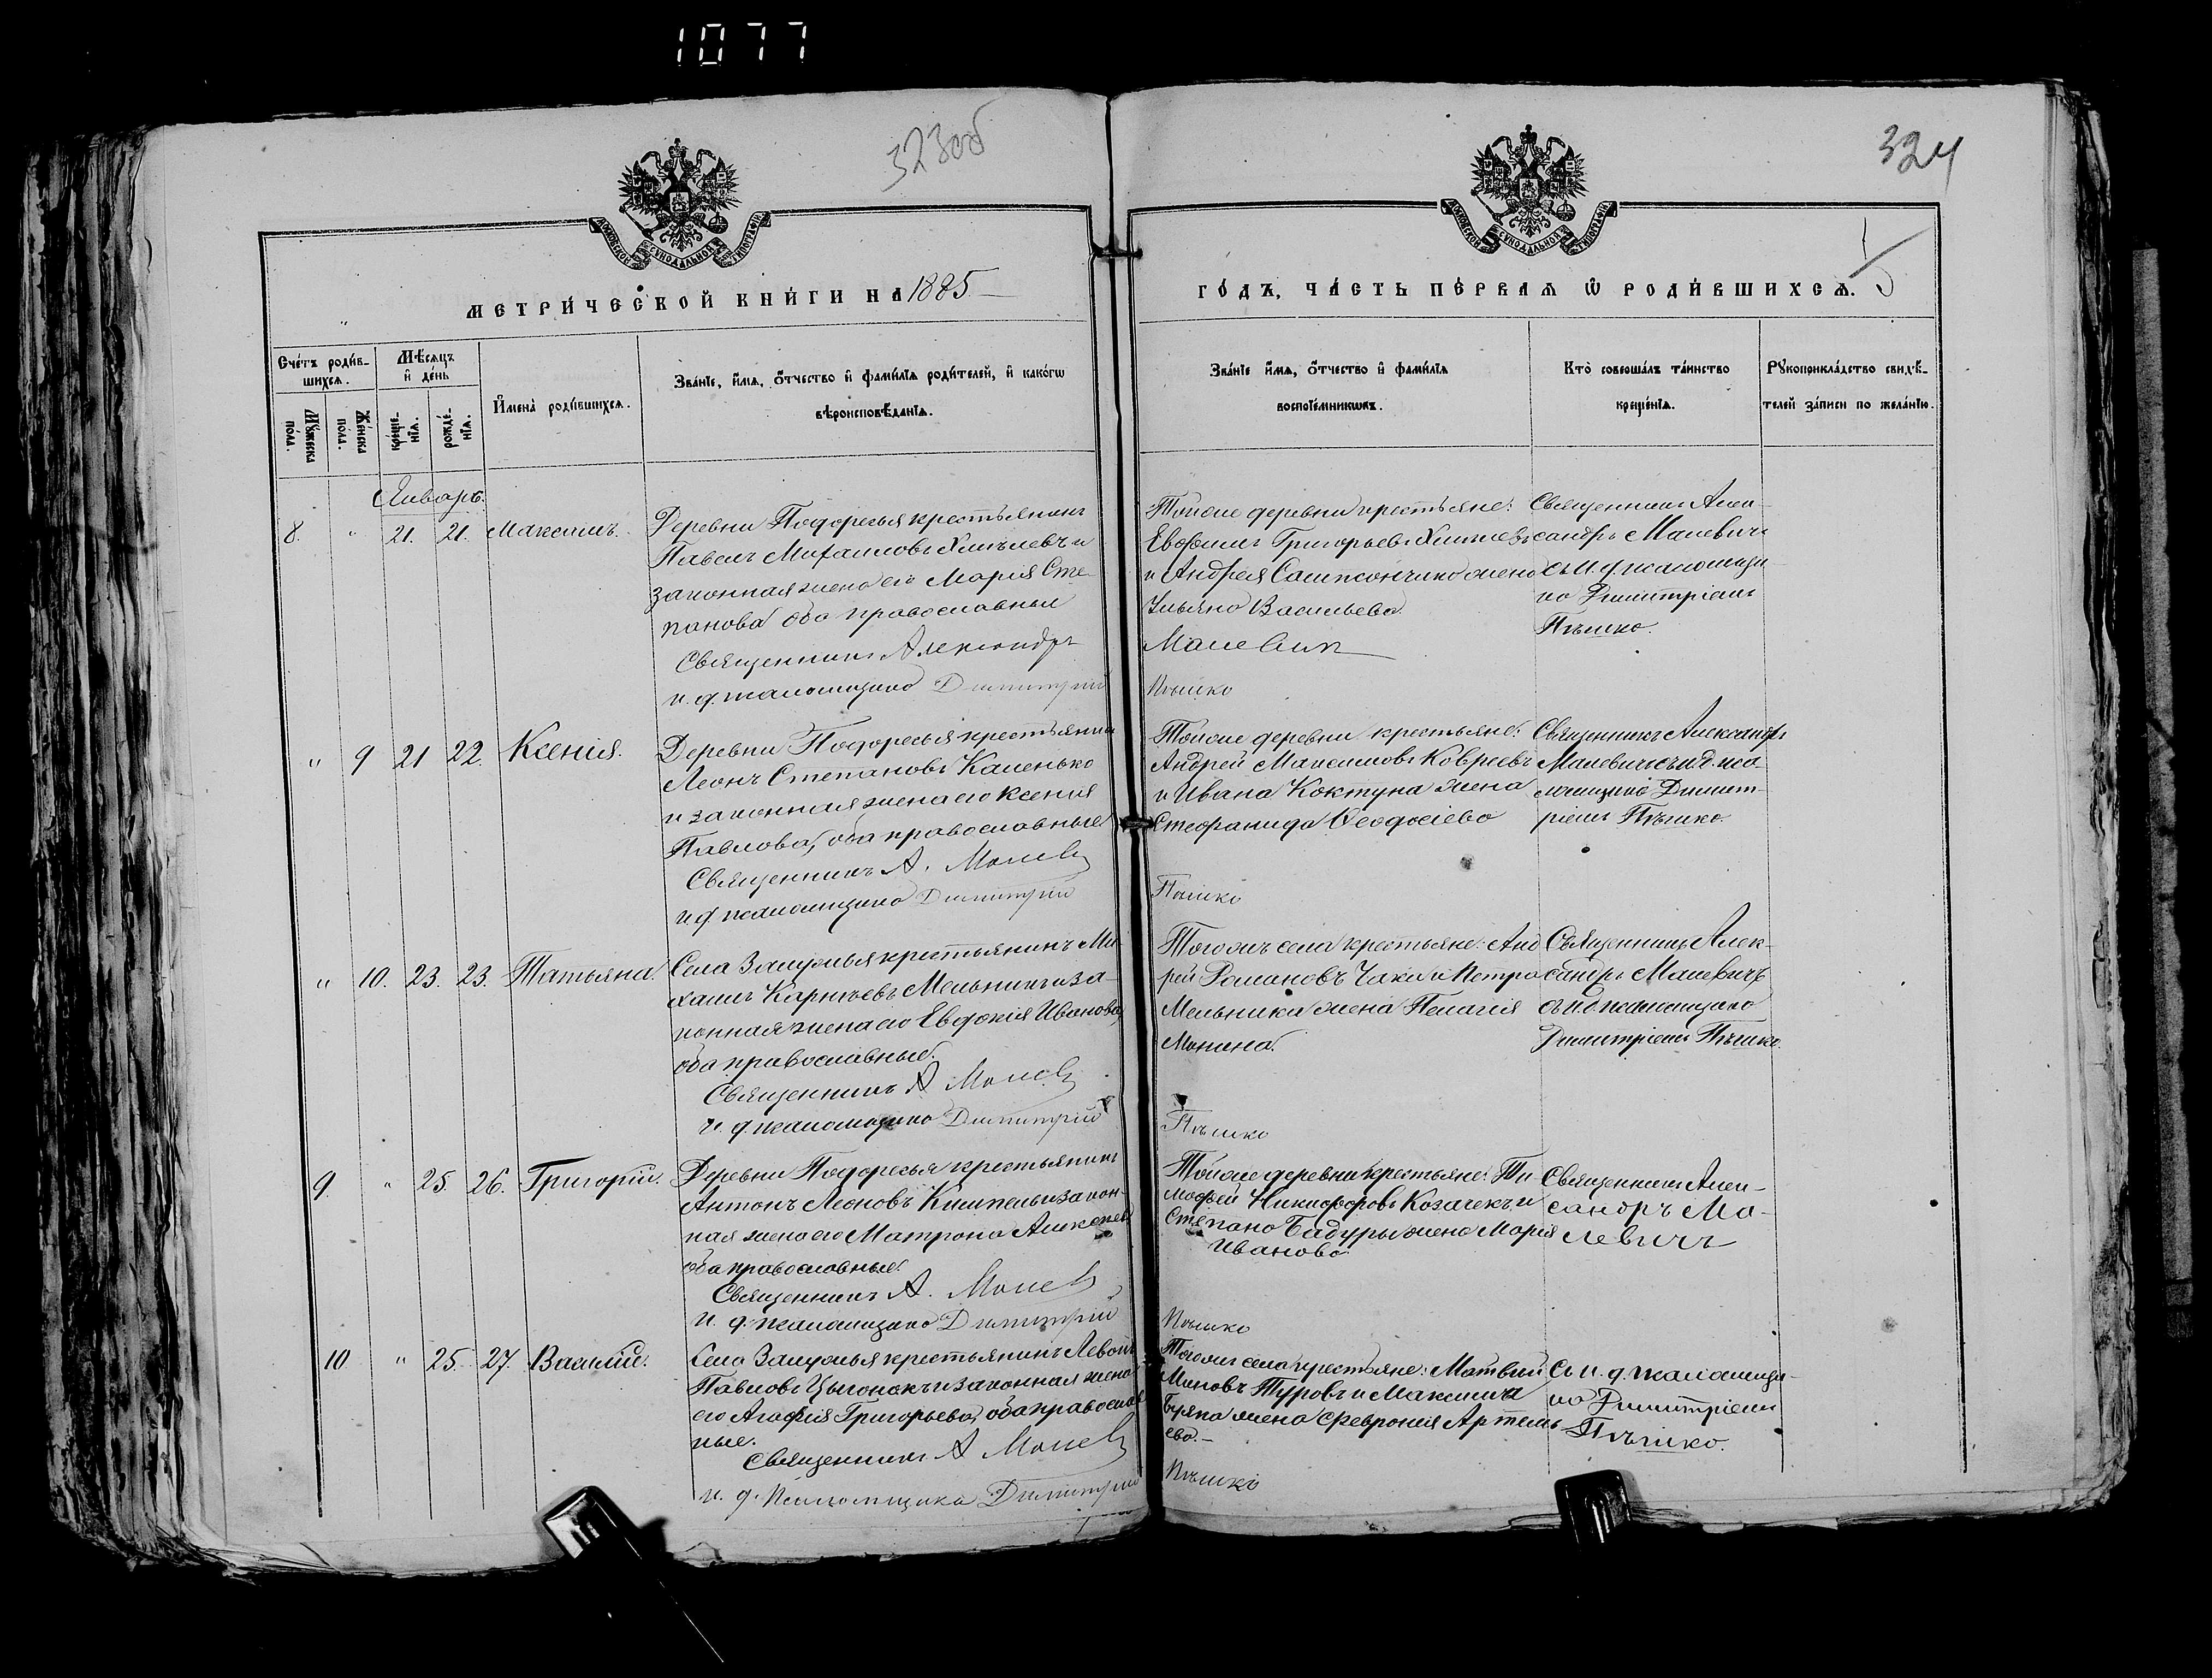 1077
323об
324
МОСКОВСКОЙ СѴНОДАЛЬНОЙ ТИПОГРАФІИ
МОСКОВСКОЙ СѴНОДАЛЬНОЙ ТИПОГРАФІИ
МЕТРИ́ЧЕСКОЙ КНИ́ГИ НА 1885
ГО́ДЪ, ЧА́СТЬ ПЕ́РВАѦ Ѡ҆ РОДИ́ВШИХСѦ.
Сче́тъ роди́в-
шихсѧ.
Мѣ́сѧцъ
и҆ де́нь
Мꙋ́жеска
по́ла.
Же́нска
по́ла.
креще́-
нїѧ.
рожде́-
нїѧ.
И҆мена̀ роди́вшихсѧ.
Зва́нїе, и҆́мѧ, о҆́тчество и҆ фами́лїѧ роди́телей, и҆ како́гѡ
вѣроисповѣ́данїѧ.
Зва́нїе и҆́мѧ, о҆́тчество и҆ фами́лїѧ
воспрїе́мниковъ.
Кто̀ соверша́лъ та́инство
креще́нїѧ.
Рꙋкоприкла́дство свидѣ́-
телей за́писи по жела́нїю.
Январь.
8. " 21. 21. Максимъ.
Деревни Подоресья крестьянинъ
Павелъ Михаиловъ
законная жена его Марія Сте-
панова оба православныя
Священникъ Александръ
и. д. псаломщика Димитрій
Тойже деревни крестьяне:
Евфимъ Григорьевъ
и Андрея жена
Ульяна Васильева.
Малевич
Пѣшко
Священникъ Алек-
сандръ Малевичъ
съ и. д. псаломщи-
ка Димитріемъ
Пѣшко.
" 9 21 22. Ксенія.
Деревни Подоресья крестьянинъ
Леонъ Степановъ Каленько
и законная жена его Ксенія
Павлова, оба православные
Священникъ А. Малев
и д псаломщика Димитрій
Тойже деревни крестьяне:
Андрей Максимовъ Ковреевъ
и Ивана Коктуна жена
Стефанида Ѳеодосіева
Пѣшко
Священникъ Александръ
Малевичъ съ и д. пса-
ломщика Димит-
ріемъ Пѣшко.
" 10. 23. 23. Татьяна.
Села крестьянинъ Ми-
хаилъ Карнѣевъ Мельникъ и за-
конная жена его Евдокія Иванова,
оба православные.
Священникъ А Малев
и. д. псаломщика Димитрій
Тогожъ села крестьяне: Анд
рей Романовъ и Петра
Мельника жена Пелагія
Манина.
Пѣшко
Священникъ Алек-
сандръ Малевичъ
съ и. д. псаломщика
Димитріемъ Пѣшко.
9. " 25. 26. Григорій.
Деревни Подоресья крестьянинъ
Антонъ Леоновъ и закон-
ная жена его Матрона
оба православные.
Священникъ А. Малев
и. д. псаломщика Димитрій
Тойже деревни крестьяне: Ти
мофей Никифоровъ Козачекъ и
Степана Бадуры жена Марія
Иванова
Пѣшко
Священникъ Алек-
сандръ Ма-
левичъ
10 " 25. 27. Василій.
Села крестьянинъ Левонъ
Павловъ Цыганокъ и законная жена
его Агафія Григорьева, оба православ
ные.
Священникъ А Малев
и. д. Псаломщика Димитрій
Тогожъ села крестьяне: Матвѣй
Миновъ Туровъ и Максима
жена Февронія Артемь
ева.-
Пѣшко
Съ и. д. псаломщи-
ка Димитріемъ
Пѣшко.